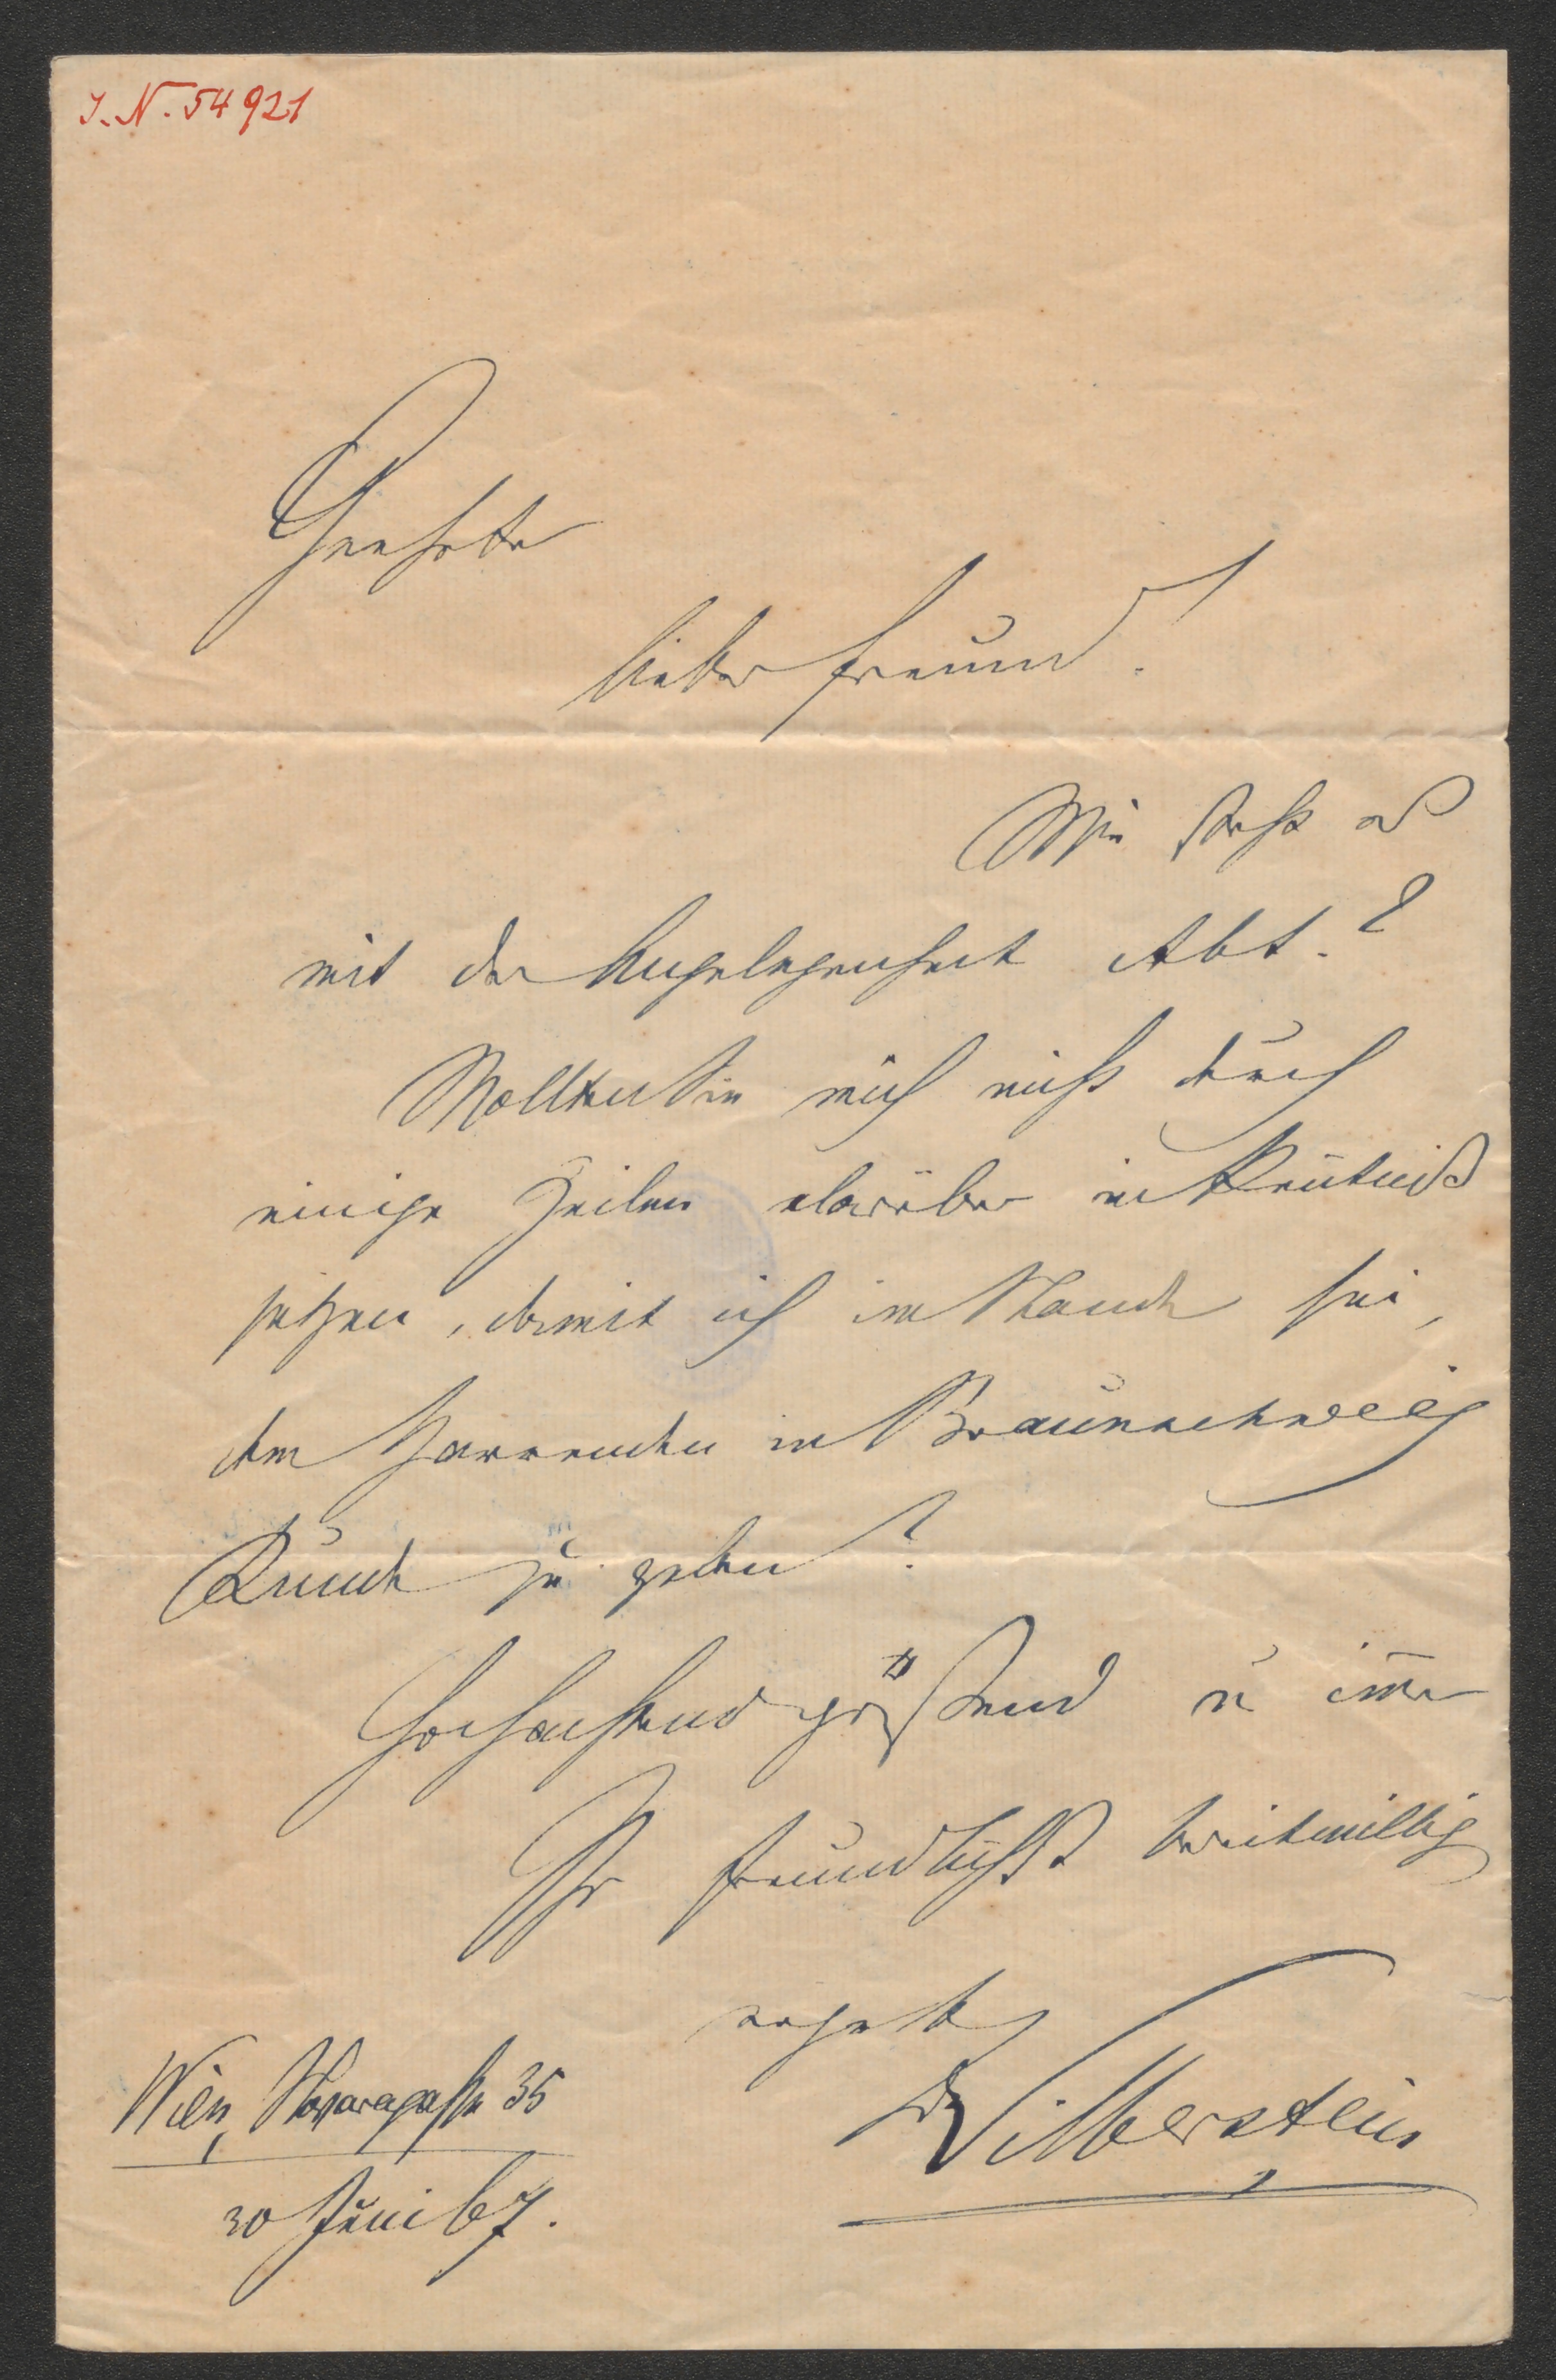 I. N. 54921
Geehrter
lieber Freund!
Wie steht es
mit der Angelegenheit Abt.?
Wollten Sie mich nicht durch
einige Zeilen darüber in Keñtniß
setzen, damit ich im Stande sei,
dem Harrenden in Braunschweig
Kunde zu geben?
Hochachtend grüßend u im̄er
Ihr freundlichst bereitwillig
ergebener
Wien, Novaragasse 35
Silberstein
30 Juni 67.